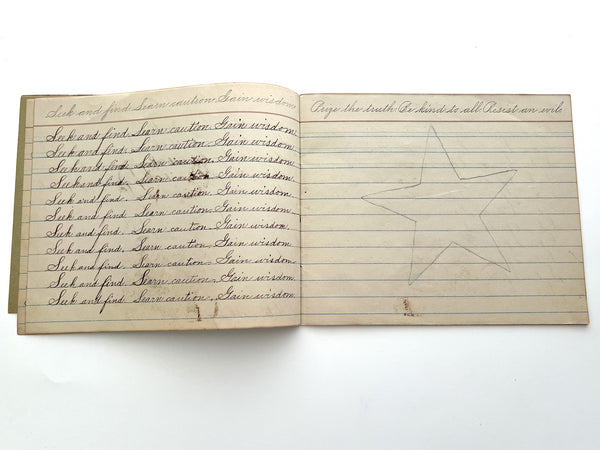 Seek and find. Learn caution. Gain wisdom.
Seek and find. Learn caution. Gain wisdom.
Seek and find. Learn caution. Gain wisdom.
Seek and find. Learn caution. Gain wisdom.
Seek and find. Learn caution. Gain wisdom.
Seek and find. Learn caution. Gain wisdom.
Seek and find. Learn caution. Gain wisdom.
Seek and find. Learn caution. Gain wisdom.
Seek and find. Learn caution. Gain wisdom
Seek and find. Learn caution. Gain wisdom.
Seek and find. Learn caution. Gain wisdom.
Seek and find. Learn caution. Gain wisdom.
Prize the truth. Be kind to all. Resist an evil